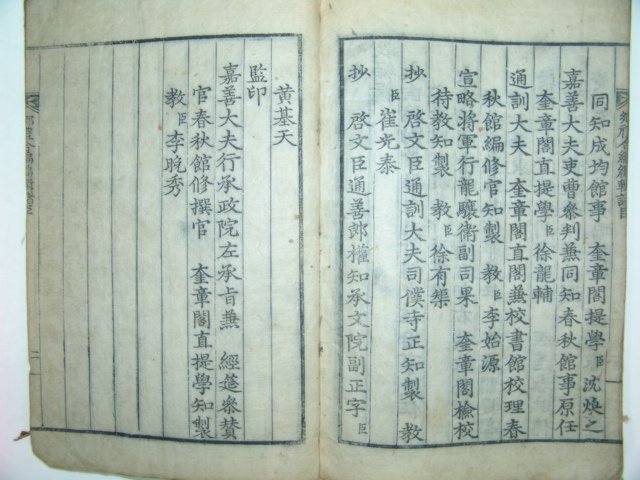 同知成均館事　奎章閣提學臣沈煥之
嘉善大夫吏曹參判兼同知春秋館事原任
奎章閣直提學臣徐龍輔
通訓大夫　奎章閣直閣兼校書館校理春
秋館編修官知製　敎臣李始源
宣略將軍行龍驤衛副司果　奎章閣檢校
待敎知製　敎臣徐有榘
抄　啓文臣通訓大夫司僕寺正知製　敎
臣崔光泰
抄　啓文臣通善郎權知承文院副正字臣
黃基天
監印
嘉善大夫行承政院左承旨兼　經筵參贊
官春秋館修撰官　奎章閣直提學知製
敎臣李晚秀